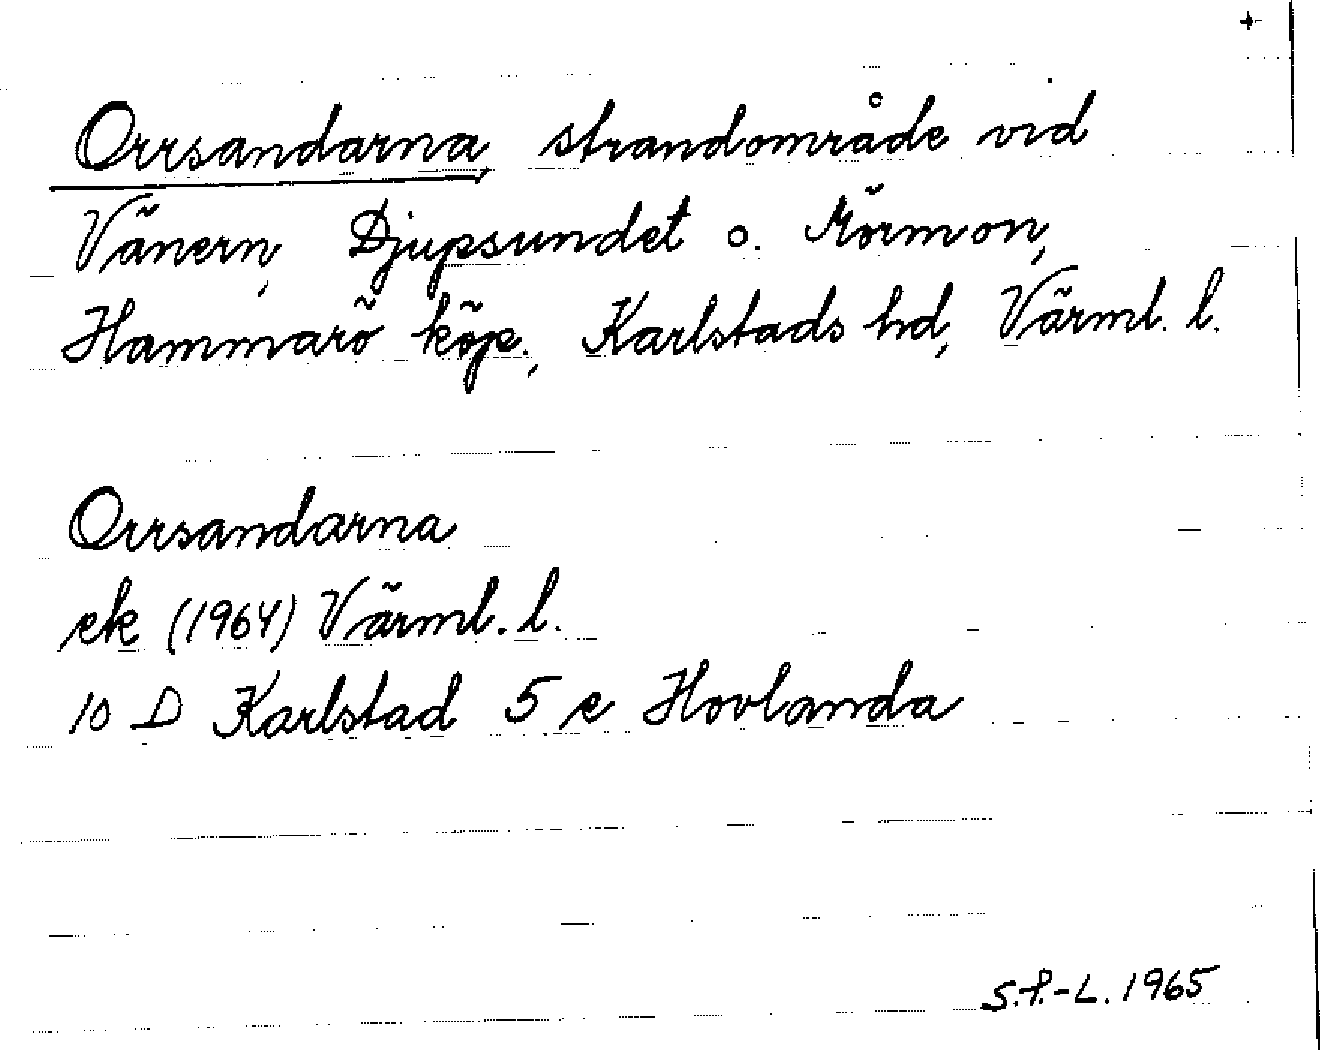 Orrsandarna, strandområde vid
Vänern, Djupsundet o. Rörmon,
Hammarö köp., Karlstads hd, Värml. l.
Orrsandarna
ek (1964) Värml. l.
10 D Karlstad 5 e Hovlanda
S.P.-L. 1965